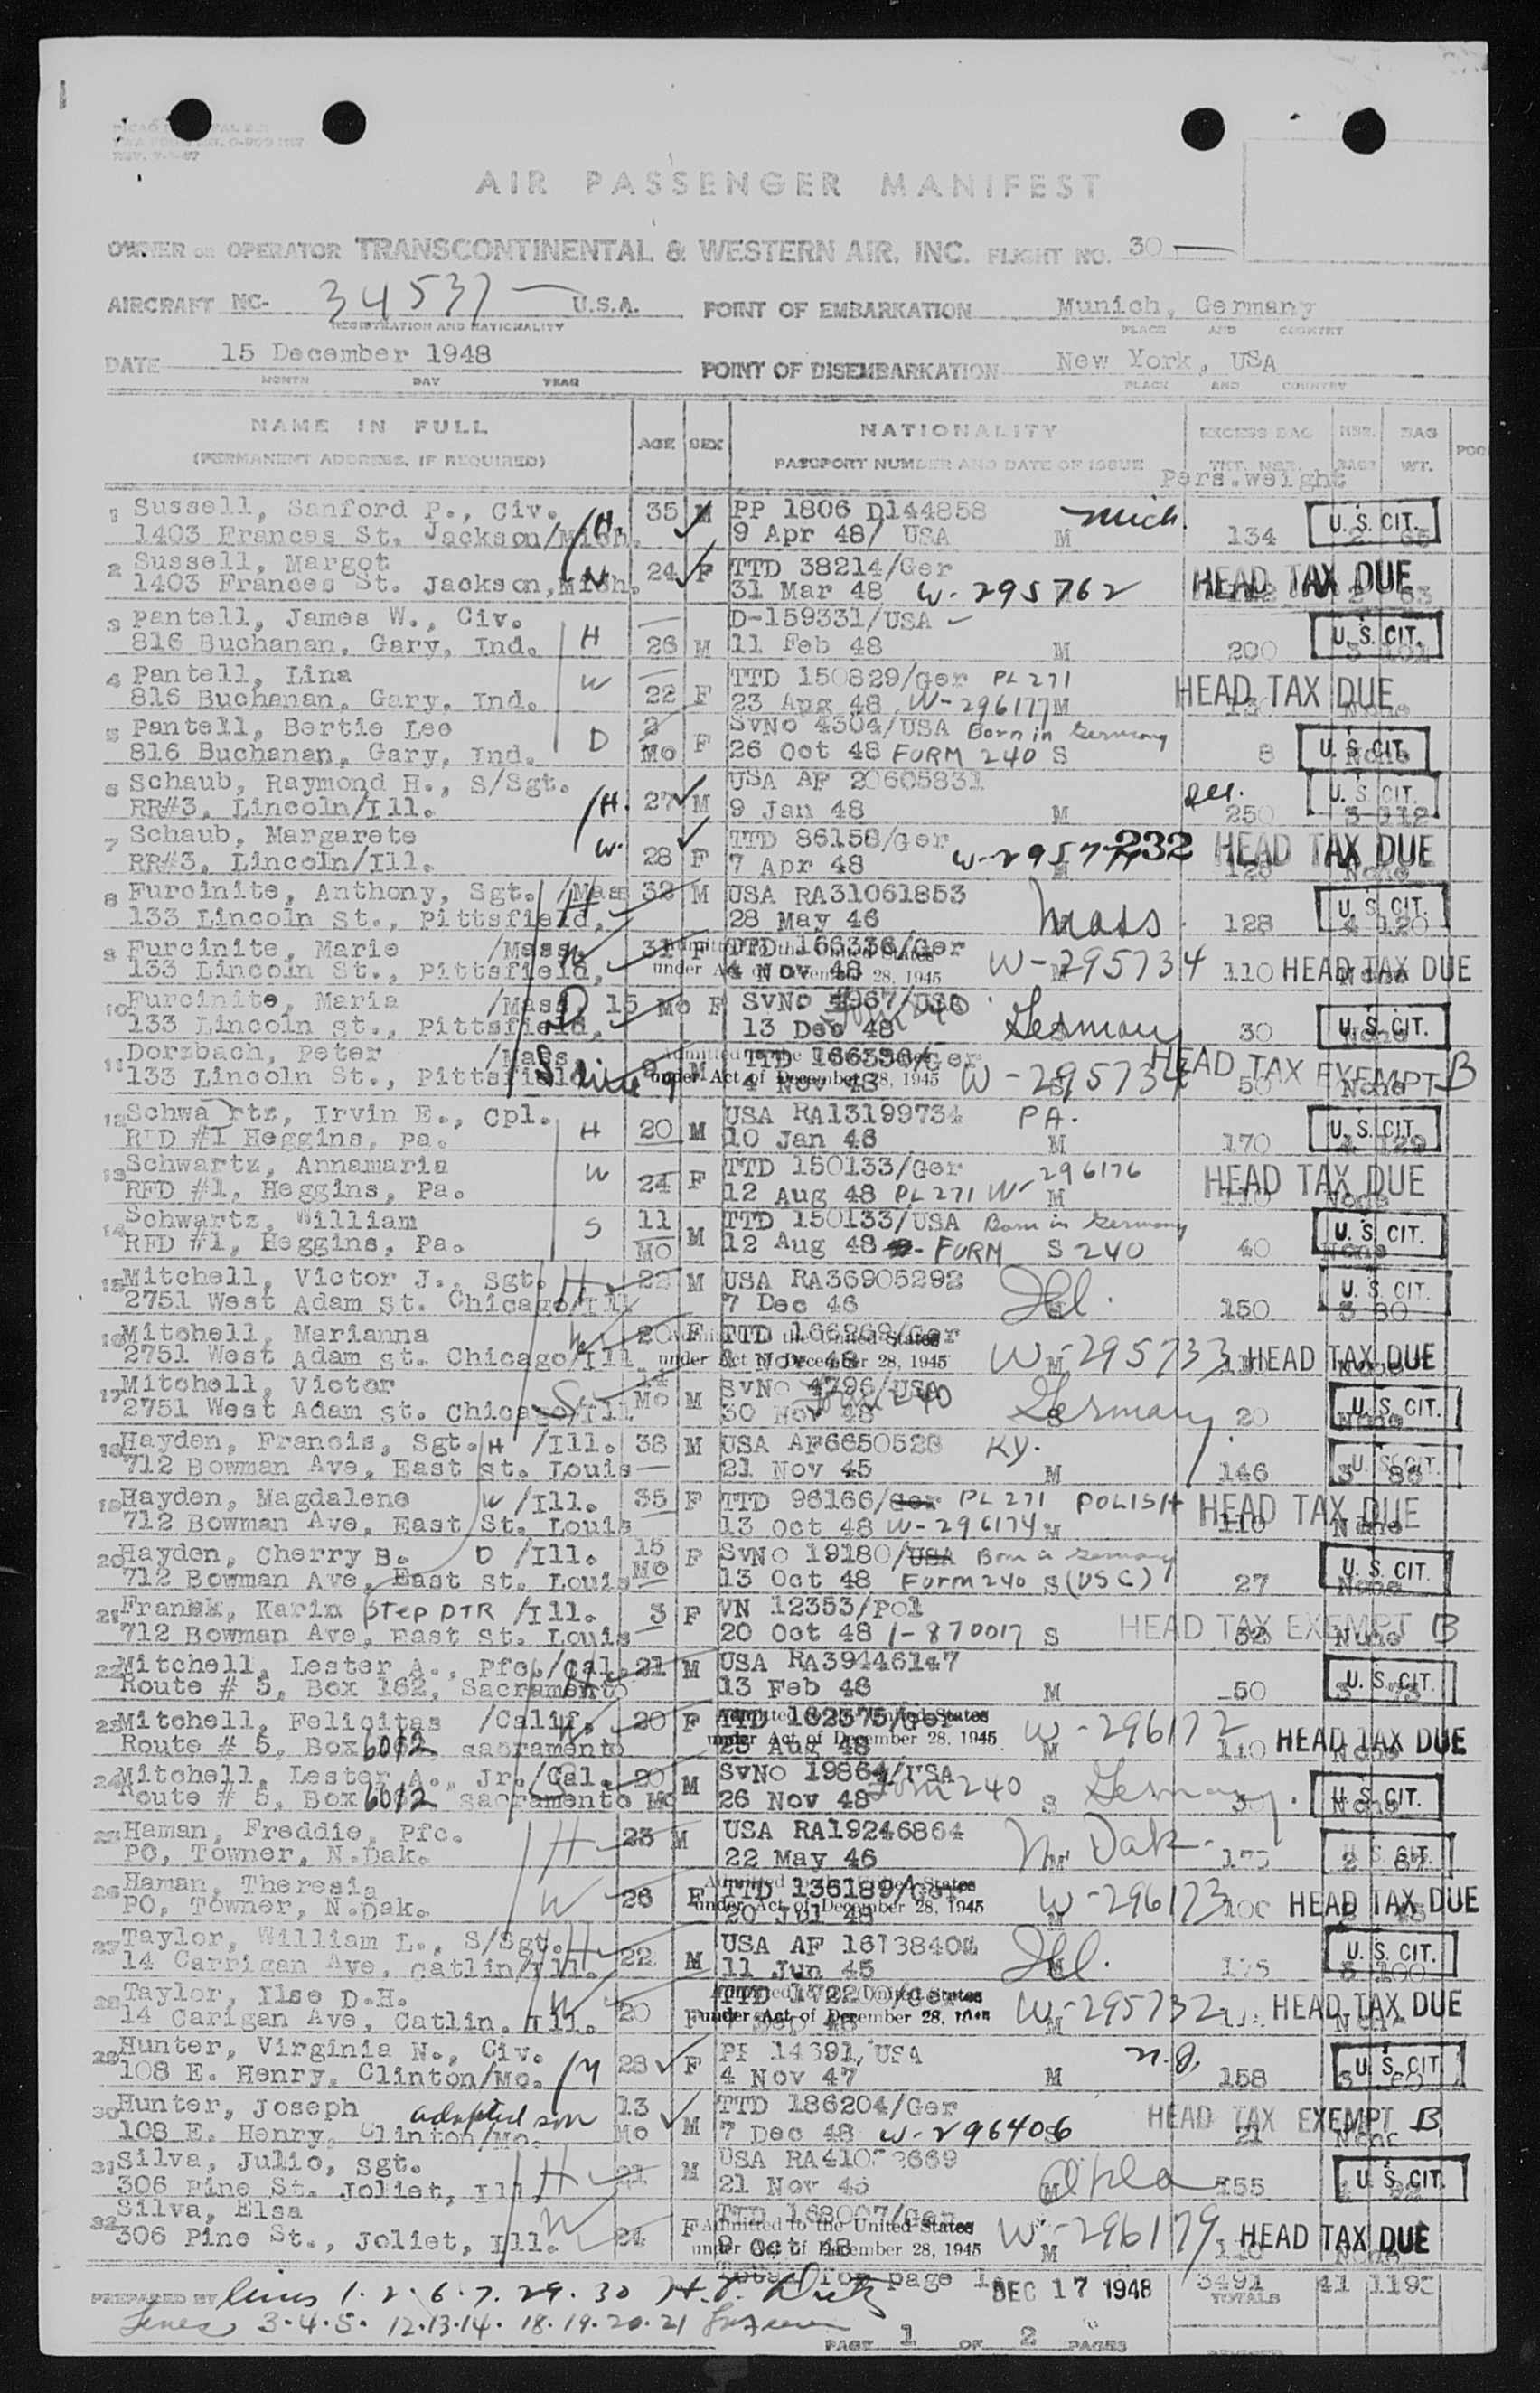 AIR PASSENGER MANIFEST
OWNER OR OPERATOR TRANSCONTINENTAL & WESTERN AIR, INC. FLIGHT NO. 30
AIRCRAFT NC- 34537 U.S.A. POINT OF EMBARKATION Munich, Germany
REGISTRATION AND NATIONALITY PLACE AND COUNTRY
DATE 15 December 1948 POINT OF DISEMBARKATION New York, USA
MONTH DAY YEAR PLACE AND COUNTRY
NAME IN FULL AGE SEX NATIONALITY EXCESS BAG NBR. BAG
(PERMANENT ADDRESS, IF REQUIRED) PASSPORT NUMBER AND DATE OF ISSUE WT.
Pers.weight
1 Sussell, Sanford P., Civ. H. 35 M PP 1806 D144858 Mich. U. S. CIT.
1403 Frances St. Jackson/Mich. 9 Apr 48/ USA M 134 2 65
2 Sussell, Margot W 24 F TTD 38214/Ger HEAD TAX DUE
1403 Frances St. Jackson, Mich. 31 Mar 48 W-295762
3 Pantell, James W., Civ. H D-159331/USA U. S. CIT.
816 Buchanan, Gary, Ind. 26 M 11 Feb 48 M 200 3 101
4 Pantell, Lina W TTD 150829/Ger PL 271 HEAD TAX DUE
816 Buchanan, Gary, Ind. 22 F 23 Aug 48 W-296177 M None
5 Pantell, Bertie Lee D 2 SvNo 4304/USA Born in Germany U. S. CIT.
816 Buchanan, Gary, Ind. Mo F 26 Oct 48 FORM 240 S 8 None
6 Schaub, Raymond H., S/Sgt. H. USA AF 20605831 Ill. U. S. CIT.
RR#3, Lincoln/Ill. 27 M 9 Jan 48 M 250 3 112
7 Schaub, Margarete W. TTD 86158/Ger 232 HEAD TAX DUE
RR#3, Lincoln/Ill. 28 F 7 Apr 48 M 120 None
8 Furcinite, Anthony, Sgt. /Mass H 32 M USA RA31061853 Mass. U. S. CIT.
133 Lincoln St., Pittsfield, 28 May 46 128 4 120
9 Furcinite, Marie /Mass. W 31 F TTD 166336/Ger Admitted to the United States
133 Lincoln St., Pittsfield, 4 Nov 48 under Act of December 28, 1945 W-295734 110 HEAD TAX DUE
10 Furcinite, Maria /Mass D 15 Mo F SvNo 4967/USA Form 240 Germany U. S. CIT.
133 Lincoln St., Pittsfield, 13 Dec 48 30 None
11 Dorzbach, Peter /Mass. S M TTD 166336/Ger Admitted to the HEAD TAX EXEMPT B
133 Lincoln St., Pittsfield 4 Nov 48 under Act of December 28, 1945 W-295734 50 None
12 Schwartz, Irvin E., Cpl. H USA RA13199734 PA. U. S. CIT.
RFD #1 Heggins, Pa. 20 M 10 Jan 46 M 170 4 129
13 Schwartz, Annamaria W TTD 150133/Ger W-296176 HEAD TAX DUE
RFD #1, Heggins, Pa. 24 F 12 Aug 48 PL 271 M 110 None
14 Schwartz, William S 11 TTD 150133/USA Born in Germany U. S. CIT.
RFD #1, Heggins, Pa. Mo M 12 Aug 48 FORM S 240 40 None
15 Mitchell, Victor J., Sgt. H 22 M USA RA36905292 Ill. U. S. CIT.
2751 West Adam St. Chicago/Ill 7 Dec 46 150 3 80
16 Mitchell, Marianna W 20 F TTD 166269/Ger the United States
2751 West Adam St. Chicago/Ill Nov 48 under Act of December 28, 1945 W-295733 HEAD TAX DUE
17 Mitchell, Victor S 14 SvNo 4796/USA Form 240 Germany U. S. CIT.
2751 West Adam St. Chicago/Ill Mo M 30 Nov 48 S 20 None
18 Hayden, Francis, Sgt. H /Ill. 38 M USA AF6650528 KY. U. S. CIT.
712 Bowman Ave, East St. Louis 21 Nov 45 M 146 3 83
19 Hayden, Magdalene W /Ill. 35 F TTD 96166/Ger PL 271 POLISH HEAD TAX DUE
712 Bowman Ave, East St. Louis 13 Oct 48 W-296174 M 110 None
20 Hayden, Cherry B. D /Ill. 15 F SvNo 19180/USA Born in Germany U. S. CIT.
712 Bowman Ave, East St. Louis Mo 13 Oct 48 Form 240 S (USC) 27 None
21 Franek, Karin STEP DTR /Ill. 3 F VN 12353/Pol HEAD TAX EXEMPT B
712 Bowman Ave, East St. Louis 20 Oct 48 1-870017 S None
22 Mitchell, Lester A., Pfc./Cal. H 21 M USA RA39446147 U. S. CIT.
Route # 5, Box 162, Sacramento 13 Feb 46 M 50
23 Mitchell, Felicitas /Calif. W 20 F TTD 162375/Ger Admitted to the United States W-296172
Route # 5, Box 6012, Sacramento 25 Aug 48 under Act of December 28, 1945 M 110 HEAD TAX DUE
24 Mitchell, Lester A., Jr./Cal. S 20 M SvNo 19864/USA Form 240 Germany
Route # 5, Box 6012 Sacramento Mo 26 Nov 48 S 30 U. S. CIT.
25 Haman, Freddie, Pfc. H 23 M USA RA19246864 N Dak.
PO, Towner, N.Dak. 22 May 46 U. S. CIT.
26 Haman, Theresia W 26 F TTD 136189/Ger Admitted to the United States W-296173
PO, Towner, N.Dak. 20 Jul 48 under Act of December 28, 1945 100 HEAD TAX DUE
27 Taylor, William L., S/Sgt. H 22 M USA AF 16138404 Ill. U. S. CIT.
14 Carrigan Ave, Catlin/Ill. 11 Jun 45 175 100
28 Taylor, Ilse D.H. W 20 F TTD United States W-295732 HEAD TAX DUE
14 Carigan Ave, Catlin. Ill. under Act of December 28, 1945 M
29 Hunter, Virginia N., Civ. 28 F PP 14391, USA U. S. CIT.
108 E. Henry, Clinton/Mo. 4 Nov 47 M 158
30 Hunter, Joseph adopted son 13 TTD 186204/Ger HEAD TAX EXEMPT B
108 E. Henry, Clinton/Mo. Mo M 7 Dec 48 W-296406 21 None
31 Silva, Julio, Sgt. H 21 M USA Okla U. S. CIT.
306 Pine St. Joliet, Ill 21 Nov 45 155
32 Silva, Elsa W 24 F TTD 168007/Ger Admitted to the United States W-296179 HEAD TAX DUE
306 Pine St., Joliet, Ill. 9 Oct 48 under Act of December 28, 1945 M None
Total for page 1 DEC 17 1948 3491 41
PREPARED BY Lines 1-2-6-7-29-30 TOTALS
Lines 3-4-5- 12-13-14- 18-19-20-21
PAGE 1 OF 2 PAGES